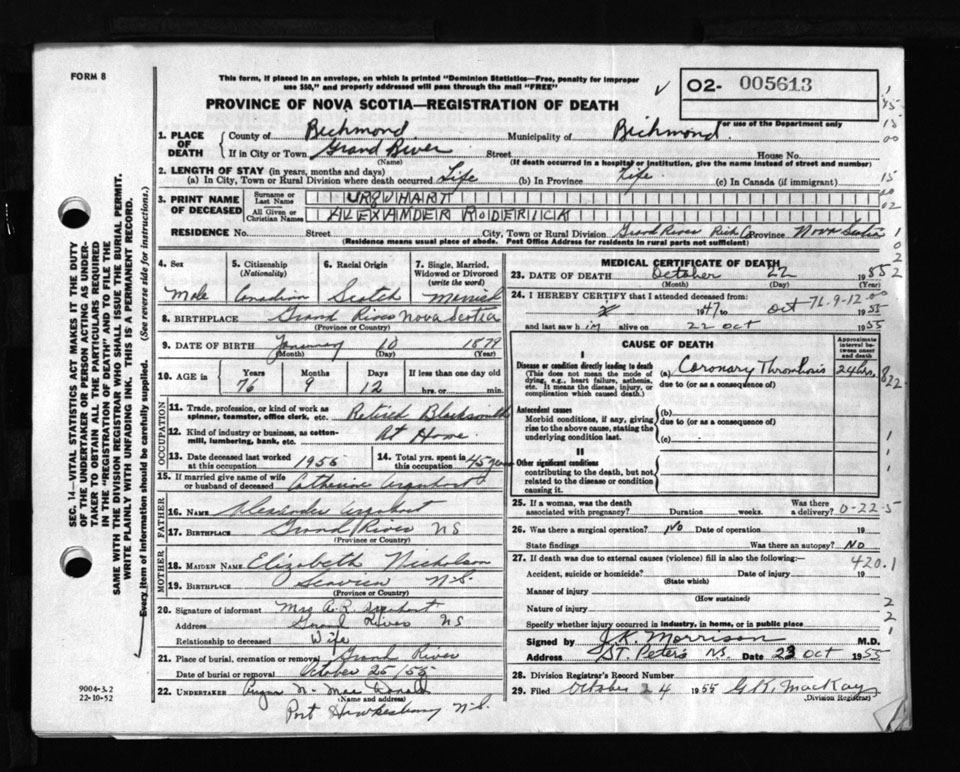 FORM 8
This form, if placed in an envelope, on which is printed "Dominion Statistics—Free, penalty for improper
use $50," and properly addressed will pass through the mail "FREE"
O2- 005613
For use of the Department only
PROVINCE OF NOVA SCOTIA—REGISTRATION OF DEATH
1. PLACE OF DEATH { County of Richmond Municipality of Richmond
If in City or Town Grand River Street House No.
(Name) (If death occurred in a hospital or institution, give the name instead of street and number)
2. LENGTH OF STAY (in years, months and days)
(a) In City, Town or Rural Division where death occurred Life (b) In Province Life (c) In Canada (if immigrant)
3. PRINT NAME OF DECEASED { Surname or Last Name URQUHART
All Given or Christian Names ALEXANDER RODERICK
RESIDENCE No. Street City, Town or Rural Division Grand River Rich Co Province Nova Scotia
(Residence means usual place of abode. Post Office Address for residents in rural parts not sufficient)
4. Sex Male
5. Citizenship (Nationality) Canadian
6. Racial Origin Scotch
7. Single, Married, Widowed or Divorced (write the word) Married
8. BIRTHPLACE Grand River Nova Scotia
(Province or Country)
9. DATE OF BIRTH January 10 1879
(Month) (Day) (Year)
10. AGE in { Years 76 Months 9 Days 12 If less than one day old
hrs. or min.
OCCUPATION
11. Trade, profession, or kind of work as spinner, teamster, office clerk, etc. Retired Blacksmith
12. Kind of industry or business, as cotton-mill, lumbering, bank, etc. At Home
13. Date deceased last worked at this occupation 1955
14. Total yrs. spent in this occupation 45 years
15. If married give name of wife or husband of deceased Catherine Urquhart
FATHER
16. NAME Alexander Urquhart
17. BIRTHPLACE Grand River NS
(Province or Country)
MOTHER
18. MAIDEN NAME Elizabeth Nicholson
19. BIRTHPLACE N.S.
(Province or Country)
20. Signature of informant Mrs A. R. Urquhart
Address Grand River NS
Relationship to deceased Wife
21. Place of burial, cremation or removal Grand River
Date of burial or removal October 25/55
22. UNDERTAKER N. MacDonald
(Name and address)
Port Hawkesbury N.S.
MEDICAL CERTIFICATE OF DEATH
23. DATE OF DEATH October 22 1955
(Month) (Day)
24. I HEREBY CERTIFY that I attended deceased from:
1947 to Oct 1955
76-9-12
and last saw him alive on 22 Oct 1955
CAUSE OF DEATH
Approximate interval between onset and death
I
Disease or condition directly leading to death
(This does not mean the mode of dying, e.g., heart failure, asthenia, etc. It means the disease, injury, or complication which caused death.)
(a) Coronary Thrombosis 24 hrs
due to (or as a consequence of)
Antecedent causes
Morbid conditions, if any, giving rise to the above cause, stating the underlying condition last.
(b)
due to (or as a consequence of)
(c)
II
Other significant conditions
contributing to the death, but not related to the disease or condition causing it.
25. If a woman, was the death associated with pregnancy? Duration weeks. Was there a delivery?
0-22-5
26. Was there a surgical operation? No Date of operation 19
State findings Was there an autopsy? No
27. If death was due to external causes (violence) fill in also the following:—
420.1
Accident, suicide or homicide? Date of injury 19
(State which)
Manner of injury
(How sustained)
Nature of injury
Specify whether injury occurred in industry, in home, or in public place
Signed by J.K. Morrison M.D.
Address St. Peters N.S. Date 23 Oct 1955
28. Division Registrar's Record Number
29. Filed October 24 1955 G.R. MacKay
(Division Registrar)
9004-3.2
22-10-52
SEC. 14—VITAL STATISTICS ACT MAKES IT THE DUTY
OF THE UNDERTAKER OR PERSON ACTING AS UNDER-
TAKER TO OBTAIN ALL THE PARTICULARS REQUIRED
IN THE "REGISTRATION OF DEATH" AND TO FILE THE
SAME WITH THE DIVISION REGISTRAR WHO SHALL ISSUE THE BURIAL PERMIT.
WRITE PLAINLY WITH UNFADING INK. THIS IS A PERMANENT RECORD.
Every item of information should be carefully supplied. (See reverse side for instructions.)